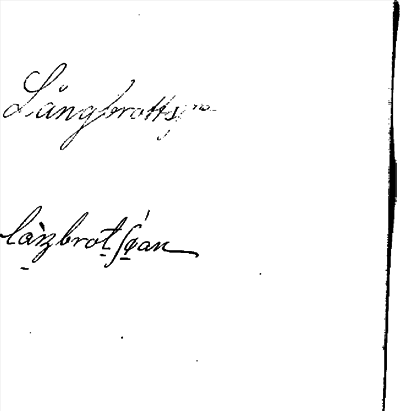 Långbrottsjön
làŋbrotʃǿan